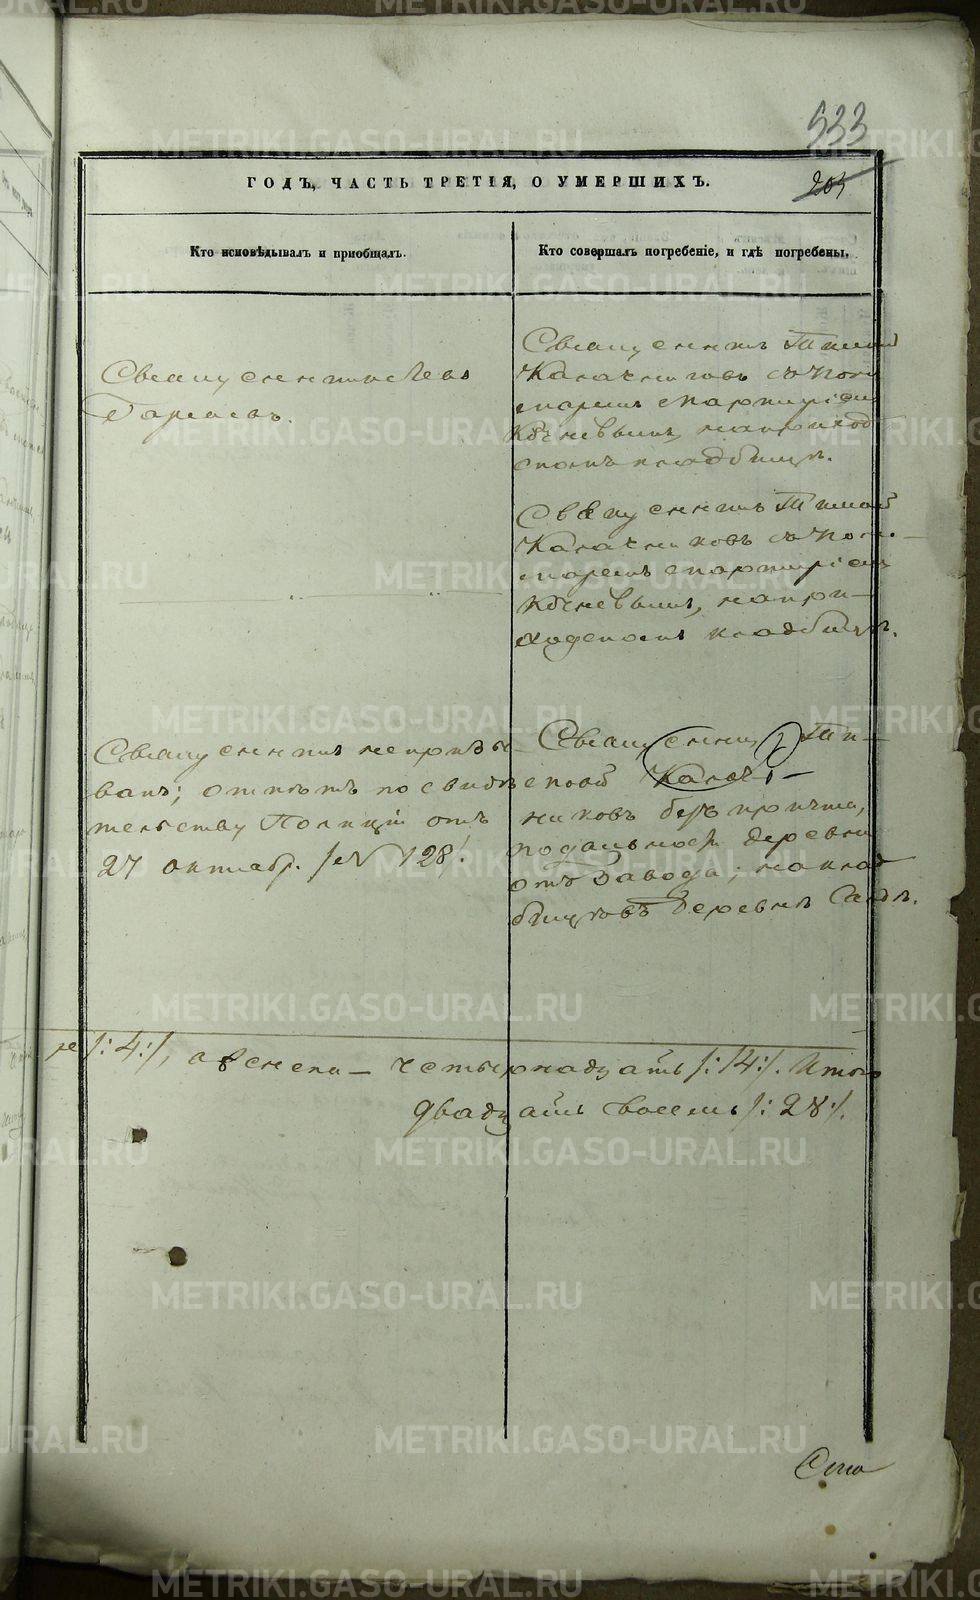 533
ГОДЪ, ЧАСТЬ ТРЕТІЯ, О УМЕРШИХЪ.
Кто исповѣдывалъ и пріобщалъ.
Кто совершалъ погребеніе, и гдѣ погребены.
Священникъ
Священникъ Тимоѳей
Калачниковъ съ Поно
маремъ Порфиріемъ
на приход
скомъ кладбищѣ.
Священникъ Тимоѳей
Калачниковъ съ Поно-
маремъ Порфиріемъ
на при-
ходскомъ кладбищѣ.
Священникъ не призы-
ванъ; отпѣтъ по свидѣ
тельству Полиціи отъ
27 октябр. № 128.
Священникъ Ти-
моѳей Калач-
никовъ безъ причта,
по дальности деревни
отъ Завода; на клад
бищѣ въ деревнѣ
/:4:/, а женска – четырнадцать /:14:/. Итого
двадцать восемь /:28:/.
METRIKI.GASO-URAL.RU